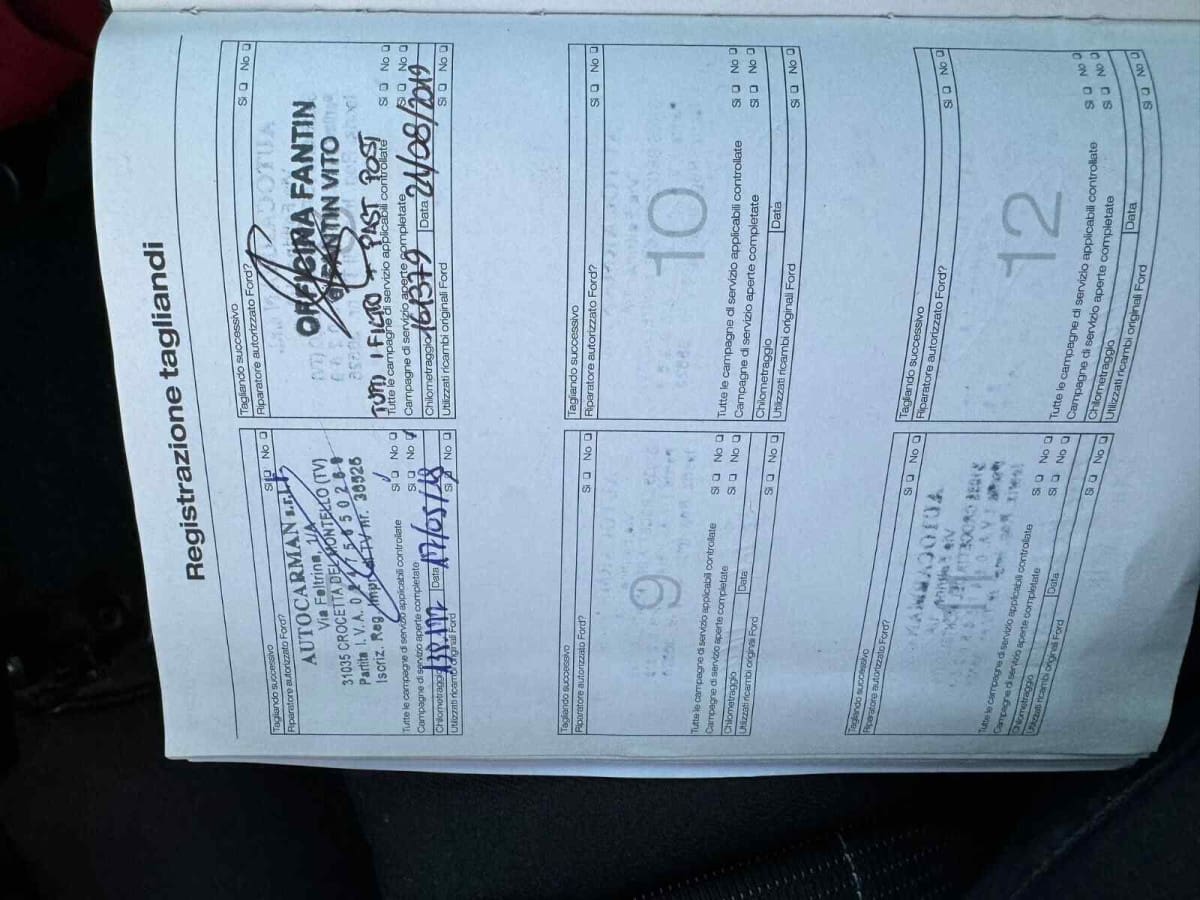 Registrazione tagliandi
Tagliando successivo
Riparatore autorizzato Ford? Sì No
AUTOCARMAN s.r.l.
Via Feltrina, 1/A
31035 CROCETTA DEL MONTELLO (TV)
Partita I.V.A. 0
Iscriz. Reg. Impr. di TV nr. 36526
Tutte le campagne di servizio applicabili controllate Sì No
Campagne di servizio aperte completate Sì No
Chilometraggio Data 17/05/18
Utilizzati ricambi originali Ford Sì No
Tagliando successivo Sì No
Riparatore autorizzato Ford?
OFFICINA FANTIN
FANTIN VITO
TUTTI I FILTRI + PAST POST
Tutte le campagne di servizio applicabili controllate Sì No
Campagne di servizio aperte completate Sì No
Chilometraggio 161379 Data 21/08/2019
Utilizzati ricambi originali Ford Sì No
Tagliando successivo
Riparatore autorizzato Ford? Sì No
9
Tutte le campagne di servizio applicabili controllate Sì No
Campagne di servizio aperte completate Sì No
Chilometraggio Data
Utilizzati ricambi originali Ford Sì No
Tagliando successivo
Riparatore autorizzato Ford? Sì No
10
Tutte le campagne di servizio applicabili controllate Sì No
Campagne di servizio aperte completate Sì No
Chilometraggio Data
Utilizzati ricambi originali Ford Sì No
Tagliando successivo
Riparatore autorizzato Ford? Sì No
Tutte le campagne di servizio applicabili controllate Sì No
Campagne di servizio aperte completate Sì No
Chilometraggio Data
Utilizzati ricambi originali Ford Sì No
Tagliando successivo
Riparatore autorizzato Ford? Sì No
12
Tutte le campagne di servizio applicabili controllate Sì No
Campagne di servizio aperte completate Sì No
Chilometraggio Data
Utilizzati ricambi originali Ford Sì No